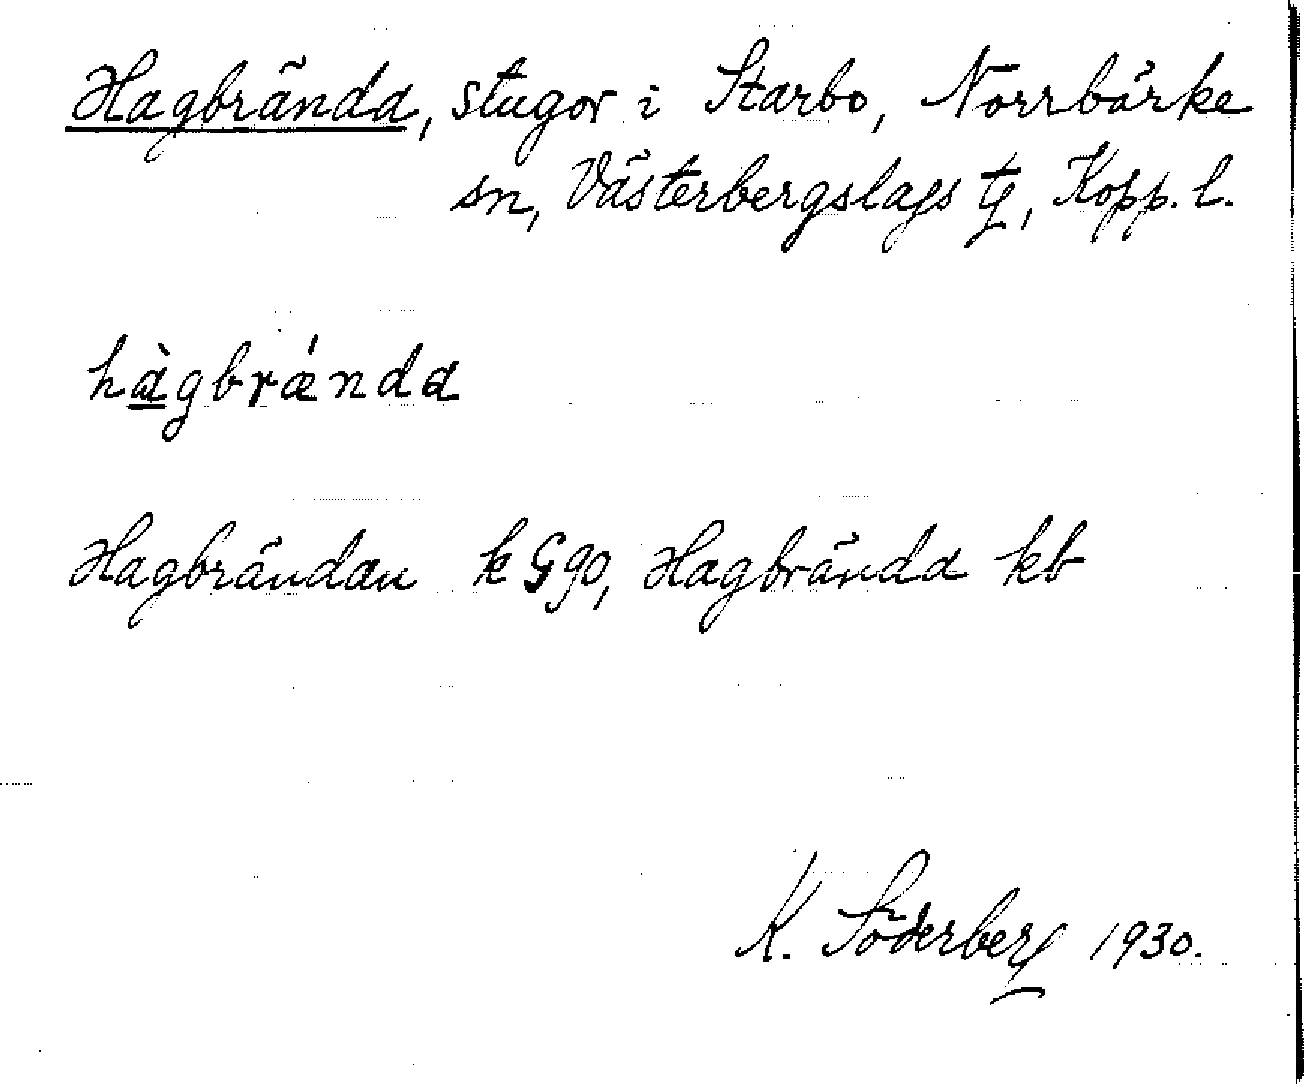 Hagbrända, stugor i Starbo, Norrbärke
sn, Västerbergslags tg, Kopp. l.
hàgbrǽnda
Hagbrändan k G90, Hagbrända kb
K. Söderberg 1930.